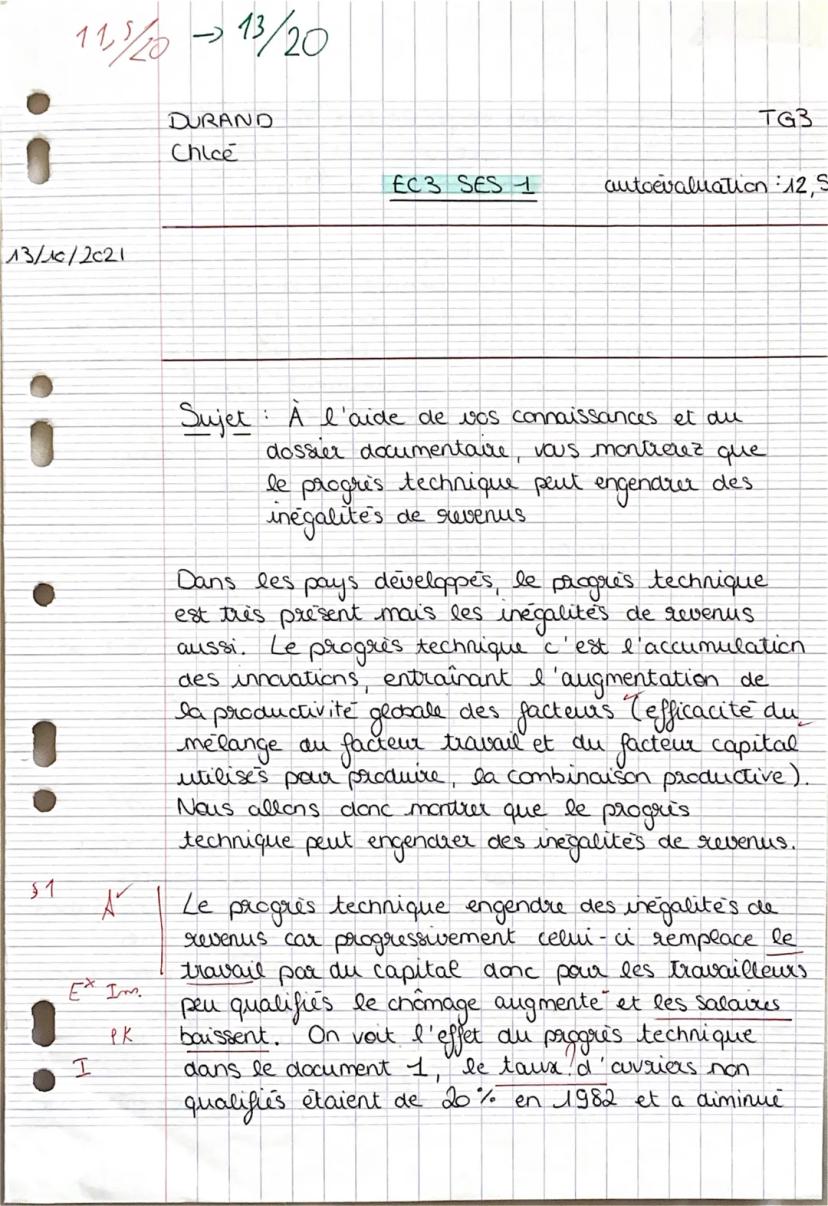 11,5/20 → 13/20
DURAND
TG3
Chloé
EC3 SES 1
autoévaluation : 12,5
13/10/2021
Sujet : À l'aide de vos connaissances et du
dossier documentaire, vous montrerez que
le progrès technique peut engendrer des
inégalités de revenus
Dans les pays développés, le progrès technique
est très présent mais les inégalités de revenus
aussi. Le progrès technique c'est l'accumulation
des innovations, entraînant l'augmentation de
la productivité globale des facteurs (efficacité du
mélange du facteur travail et du facteur capital
utilisés pour produire, la combinaison productive).
Nous allons donc montrer que le progrès
technique peut engendrer des inégalités de revenus.
§1
A
Le progrès technique engendre des inégalités de
revenus car progressivement celui-ci remplace le
travail par du capital donc pour les travailleurs
EX Im.
peu qualifiés le chômage augmente et les salaires
PK
baissent. On voit l'effet du progrès technique
I
dans le document 1, le taux ? d'ouvriers non
qualifiés étaient de 20% en 1982 et a diminué